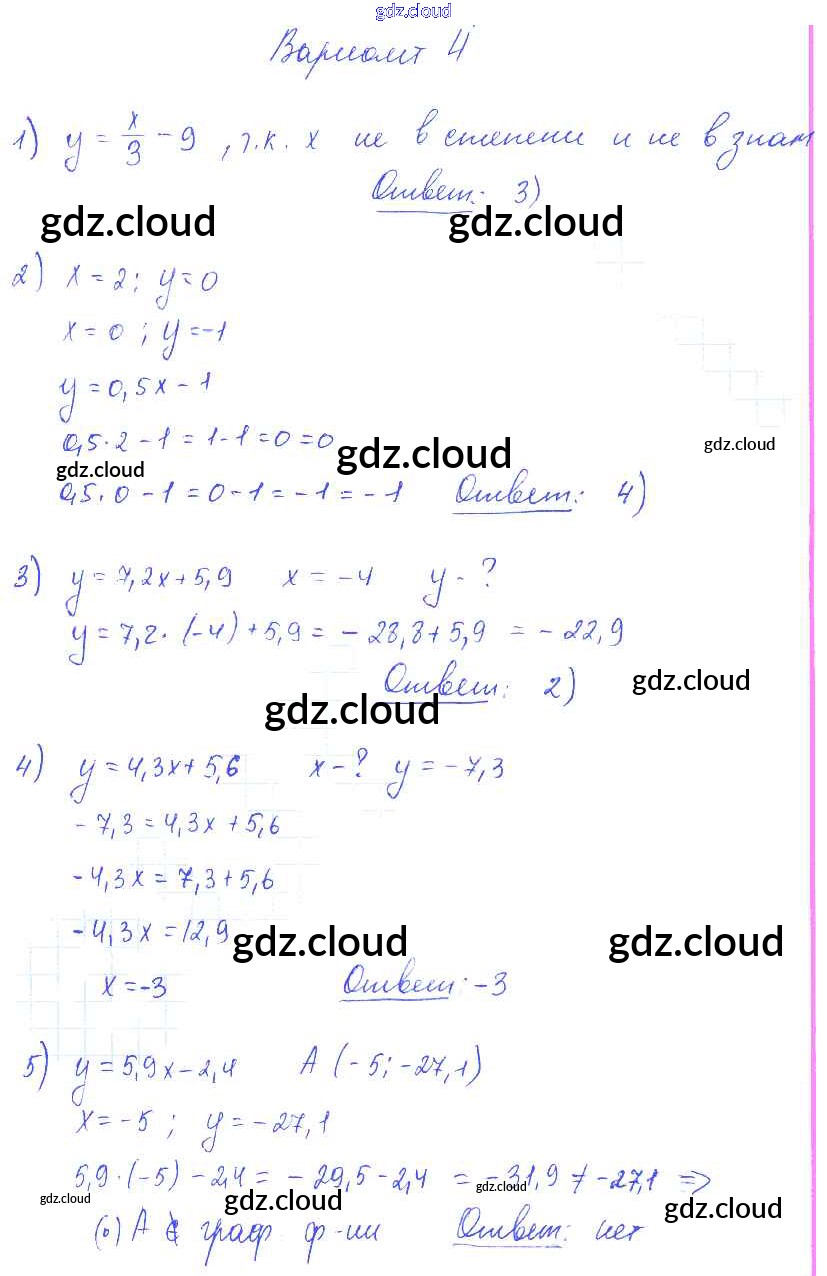 gdz.cloud
Вариант 4
1) y = x/3 - 9 , т.к. x не в степени и не в знам
Ответ: 3)
gdz.cloud gdz.cloud
2) x = 2; y = 0
x = 0 ; y = -1
y = 0,5x - 1
0,5·2 - 1 = 1 - 1 = 0 = 0
gdz.cloud gdz.cloud
gdz.cloud
0,5·0 - 1 = 0 - 1 = -1 = -1 Ответ: 4)
3) y = 7,2x + 5,9 x = -4 y - ?
y = 7,2·(-4) + 5,9 = -28,8 + 5,9 = -22,9
Ответ: 2)
gdz.cloud
gdz.cloud
4) y = 4,3x + 5,6 x - ? y = -7,3
-7,3 = 4,3x + 5,6
-4,3x = 7,3 + 5,6
-4,3x = 12,9
gdz.cloud gdz.cloud
x = -3 Ответ: -3
5) y = 5,9x - 2,4 A (-5; -27,1)
x = -5 ; y = -27,1
5,9·(-5) - 2,4 = -29,5 - 2,4 = -31,9 ≠ -27,1 ⇒
gdz.cloud gdz.cloud
gdz.cloud gdz.cloud
A ∉ граф ф-ии Ответ: нет